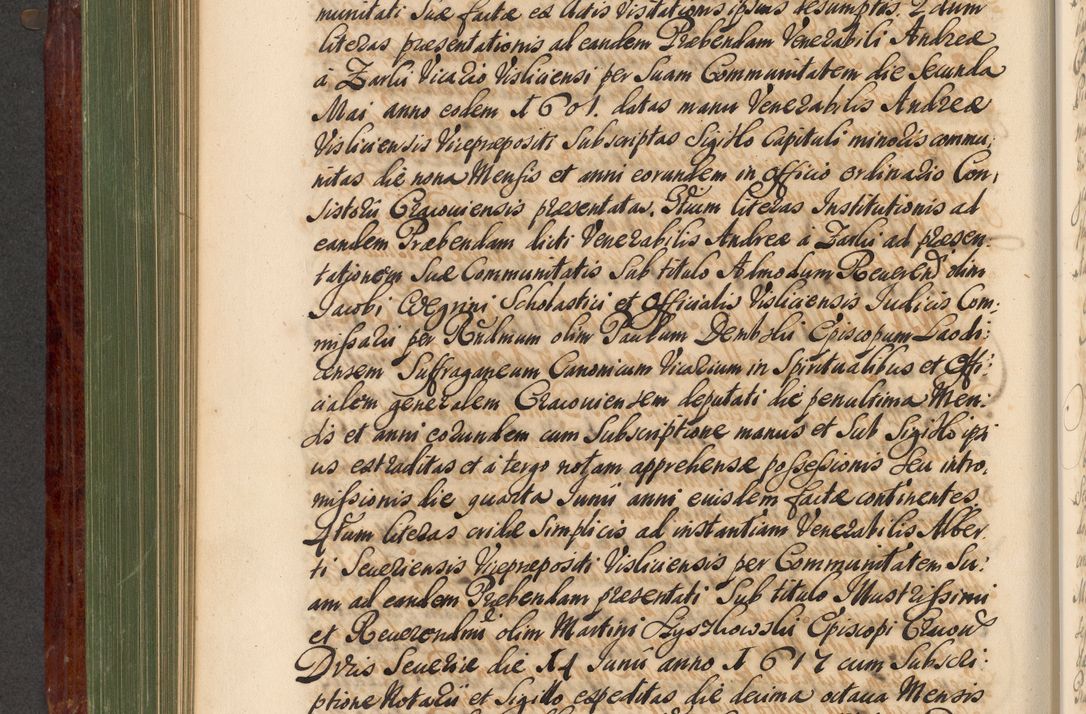 munitati suæ factæ ex Actis Visitationis ipsius desumptas. Itum
literas præsentationis ad eandem Præbendam Venerabili Andreæ
à Zarki Vicario Visliciensi per Suam Communitatem die secunda
Mai anno eodem 1601. datas manu Venerabilis Andreæ
Visliciensis Vicepræpositi subscriptas Sigillo Capituli minoris commu,
nitas die nona Mensis et anni eorundem in officio ordinario Con,
sistorii Cracouiensis præsentatas. Itum literas Institutionis ad
eandem Præbendam dicti Venerabilis Andreæ à Zarki ad præsen:
tationem suæ Communitatis sub titulo Admodum Reuerend olim
Jacobi Scholastici et Officialis Visliciensis Judicis Com:
missarii per Rndmum olim Paulum Dembski Episcopum Laodi:
censem Suffraganeum Canonicum Vicarium in Spiritualibus et Offi:
cialem generalem Cracouiensem deputati die penultima Men:
sis et anni eorundem cum subscriptione manus et sub Sigillo ipsi
us extraditas et à tergo notam apprehensæ possessionis seu intro,
missionis die quarta Junii anni euisdem factæ continentes
Itum literas cridæ simplicis ad instantiam Venerabilis Alber
ti Seueriensis Vicepræpositi Visliciensis per Communitatem Su:
am ad eandem Præbendam præsentati sub titulo Illustrissimi
et Reuerendmi olim Martini Szyszkowski Episcopi Cracou
Ducis Seueriæ die 14 Junii anno 1617 cum subscri:
ptione Notarii et Sigillo expeditas die decima octaua Mensis